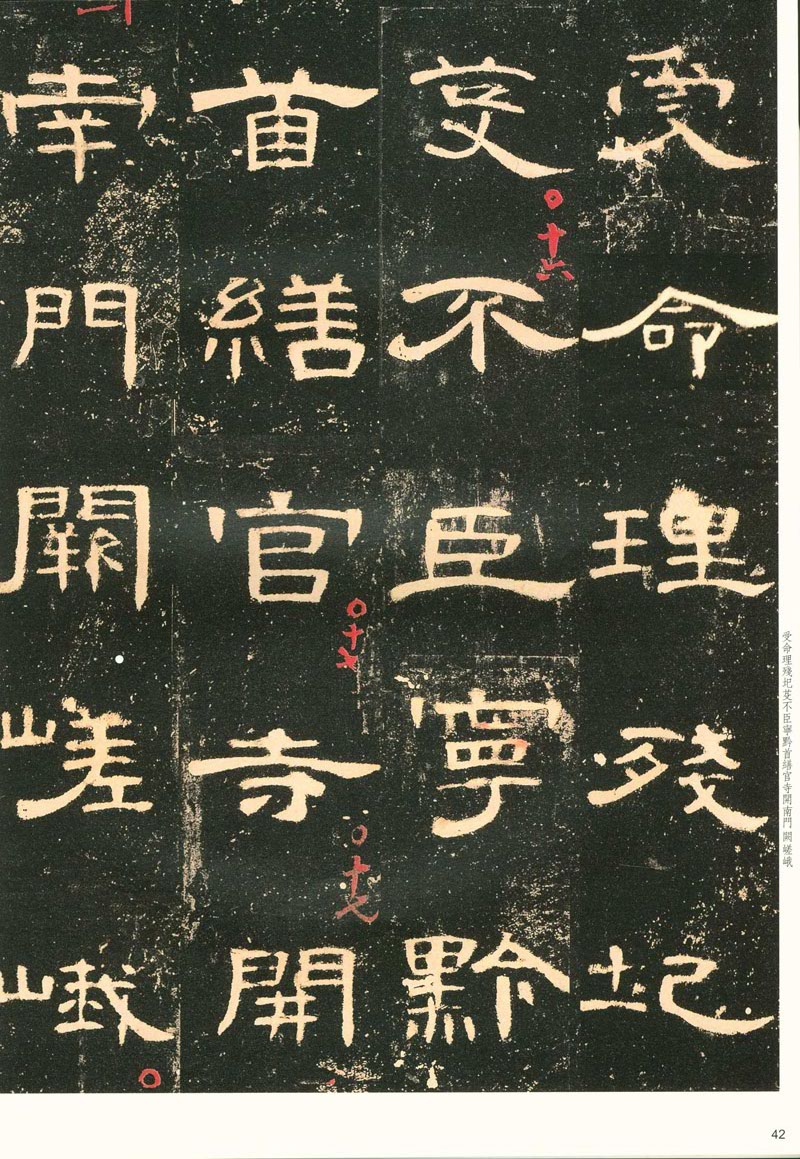 受命理殘圯
芟不臣寧黔
首繕官寺開
南門闕嵯峨
十六
十七
受命理殘圯芟不臣寧黔首繕官寺開南門闕嵯峨
42